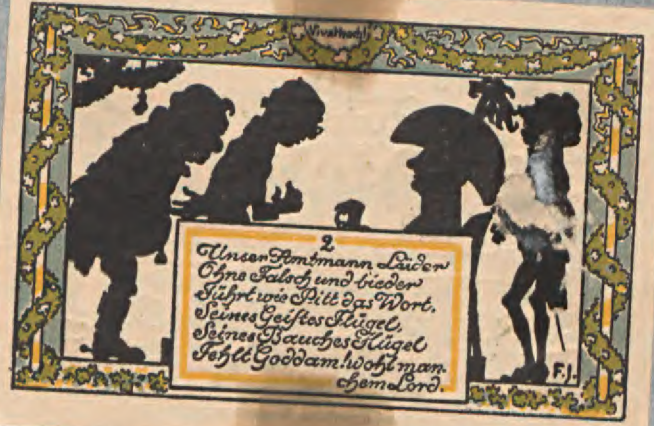 Vivat hoch!
2
Unser Amtmann Lüder
Ohne Falsch und bieder
Führt wie Pitt das Wort.
Seines Geistes Flügel,
Seines Bauches Hügel
Fehlt Goddam! wohl man-
chem Lord.
F.J.